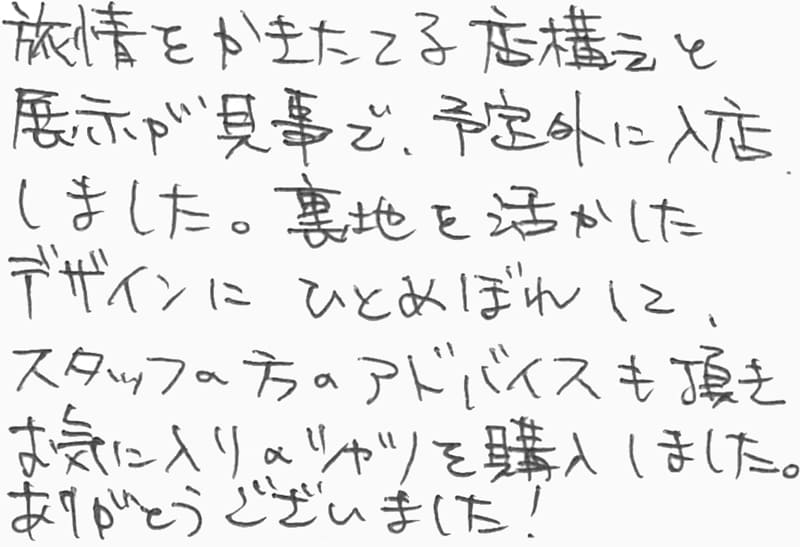 旅情をかきたてる店構えと
展示が見事で、予定外に入店
しました。裏地を活かした
デザインに ひとめぼれして、
スタッフの方のアドバイスも頂き
お気に入りのシャツを購入しました。
ありがとうございました!